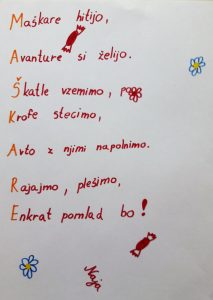 Maškare hitijo,
Avanture si želijo.
Škatle vzemimo,
Krofe stecimo,
Avto z njimi napolnimo.
Rajajmo, plešimo,
Enkrat pomlad bo!
Naja